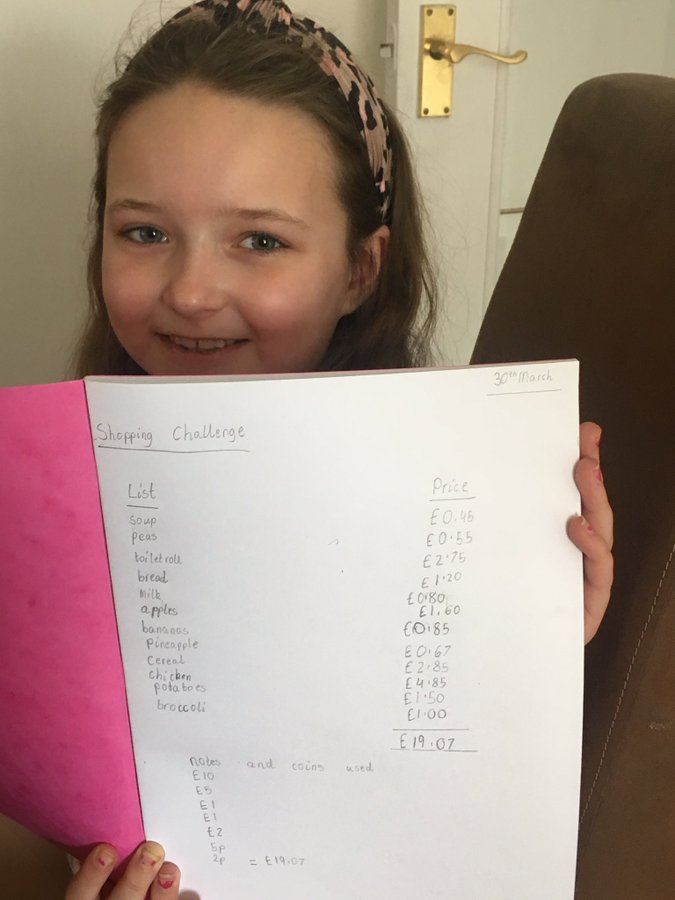 30th March
Shopping Challenge
List Price
soup £0.45
peas £0.55
toilet roll £2.75
bread £1.20
Milk £0.80
apples £1.60
bananas £0.85
Pineapple £0.67
Cereal £2.85
chicken £4.85
potatoes £1.50
broccoli £1.00
£19.07
notes and coins used
£10
£5
£1
£1
£2
5p
2p = £19.07